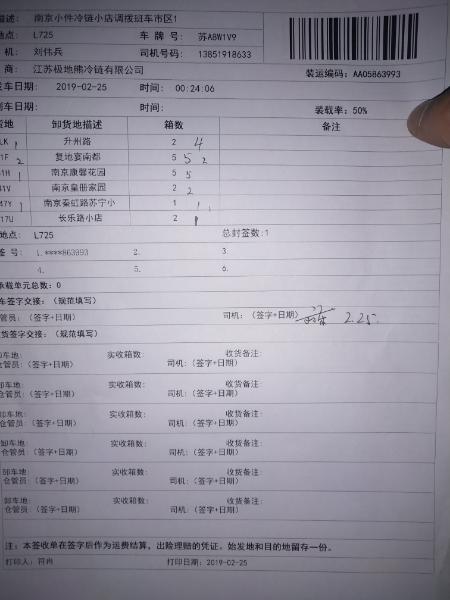 描述: 南京小件冷链小店调拨班车市区1
地点: L725 车牌号: 苏A8W1V9
机: 刘伟兵 司机号码: 13851918633
商: 江苏极地熊冷链有限公司 装运编码: AA05863993
车日期: 2019-02-25 时间: 00:24:06
到车日期: 时间: 装载率: 50%
货地 卸货地描述 箱数 备注
LK 1 升州路 2 4
1F 2 复地宴南都 5 5 2
1H 1 南京康馨花园 5 5
41V 南京皇册家园 2 2
47Y 1 南京秦虹路苏宁小 1 1
17U 长乐路小店 2 1
地点: L725 总封签数:1
签 号: 1.****863993 2. 3.
4. 5. 6.
承载单元总数: 0
车签字交接: (规范填写)
管员: (签字+日期) 司机: (签字+日期) 2.25.
货签字交接: (规范填写)
卸车地: 实收箱数: 收货备注:
仓管员: (签字+日期) 司机: (签字+日期)
卸车地: 实收箱数: 收货备注:
仓管员: (签字+日期) 司机: (签字+日期)
卸车地: 实收箱数: 收货备注:
仓管员: (签字+日期) 司机: (签字+日期)
卸车地: 实收箱数: 收货备注:
仓管员: (签字+日期) 司机: (签字+日期)
卸车地: 实收箱数: 收货备注:
仓管员: (签字+日期) 司机: (签字+日期)
卸车地: 实收箱数: 收货备注:
仓管员: (签字+日期) 司机: (签字+日期)
注: 本签收单在签字后作为运费结算, 出险理赔的凭证。始发地和目的地留存一份。
打印人: 符冉 打印日期: 2019-02-25